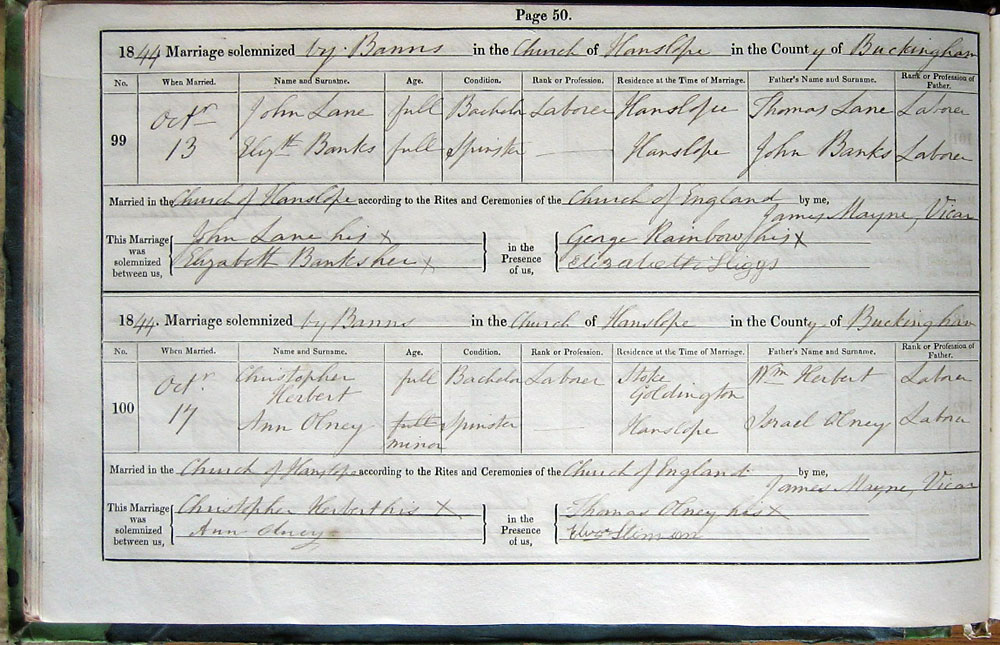 Page 50.
1844 Marriage solemnized by Banns in the Church of Hanslope in the County of Buckingham
No. When Married. Name and Surname. Age. Condition. Rank or Profession. Residence at the Time of Marriage. Father's Name and Surname. Rank or Profession of Father.
99 Octr 13 John Lane full Bachelor Laborer Hanslope Thomas Lane Laborer
Elizth Banks full Spinster — Hanslope John Banks Laborer
Married in the Church of Hanslope according to the Rites and Ceremonies of the Church of England by me,
James Mayne, Vicar
This Marriage was solemnized between us, John Lane his X in the Presence of us, George Rainbow his X
Elizabeth Banks her X Elizabeth Higgs
1844. Marriage solemnized by Banns in the Church of Hanslope in the County of Buckingham
No. When Married. Name and Surname. Age. Condition. Rank or Profession. Residence at the Time of Marriage. Father's Name and Surname. Rank or Profession of Father.
100 Octr 17 Christopher Herbert full Bachelor Laborer Stoke Goldington Wm Herbert Laborer
Ann Olney full minor Spinster — Hanslope Israel Olney Laborer
Married in the Church of Hanslope according to the Rites and Ceremonies of the Church of England by me,
James Mayne, Vicar
This Marriage was solemnized between us, Christopher Herbert his X in the Presence of us, Thomas Olney his X
Ann Olney